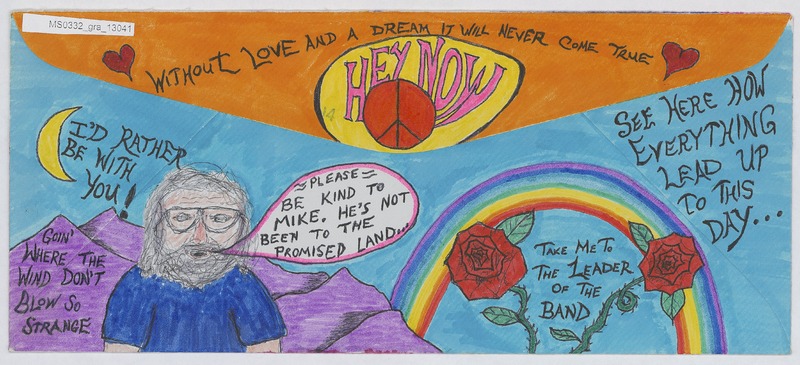 MS0332_gra_13041
WITHOUT LOVE AND A DREAM IT WILL NEVER COME TRUE
HEY NOW
I'D RATHER
BE WITH
YOU!
≈PLEASE≈
BE KIND TO
MIKE. HE'S NOT
BEEN TO THE
PROMISED LAND...
SEE HERE HOW
EVERYTHING
LEAD UP
TO THIS
DAY...
GOIN'
WHERE THE
WIND DON'T
BLOW SO
STRANGE
TAKE ME TO
THE LEADER
OF THE
BAND